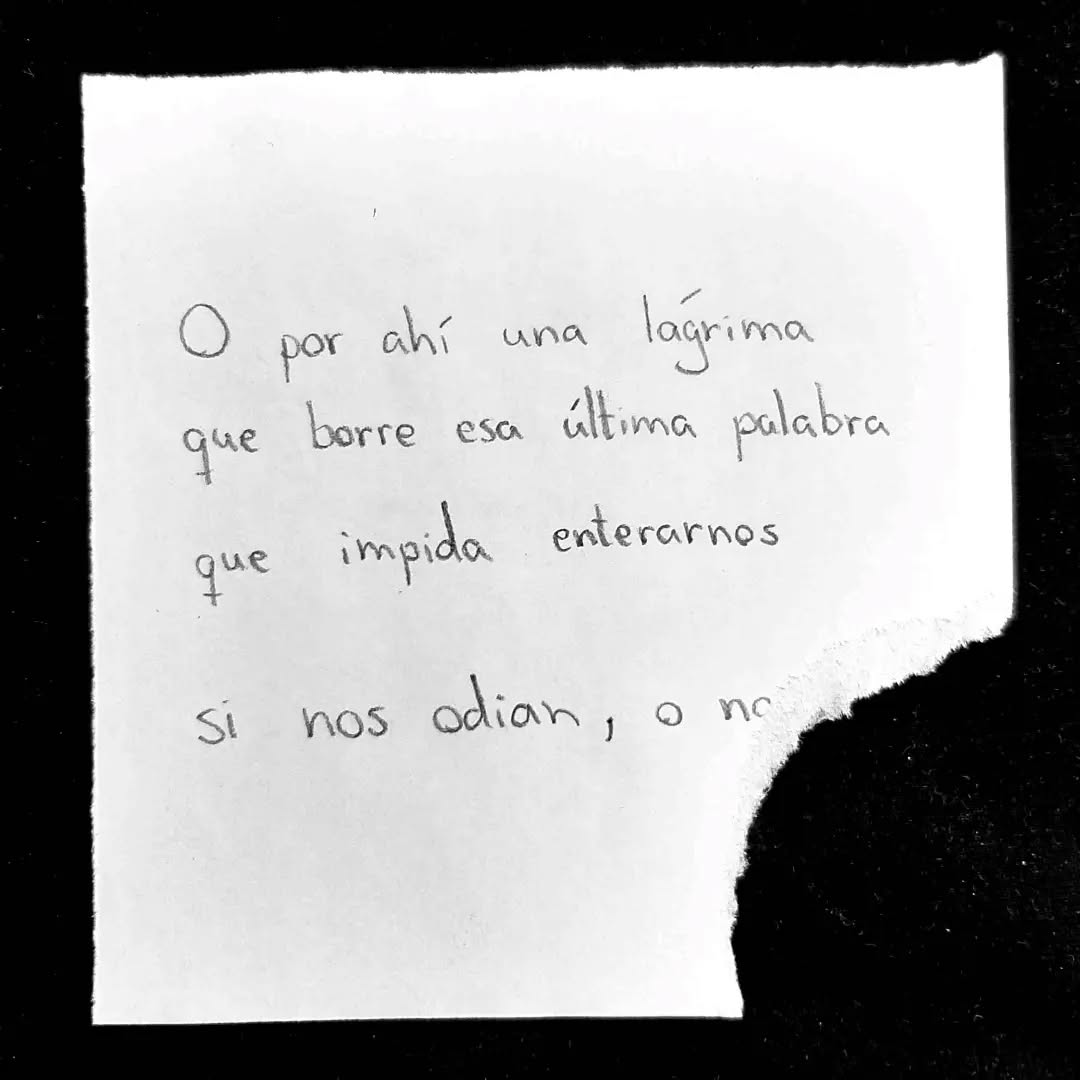 O por ahí una lágrima
que borre esa última palabra
que impida enterarnos
si nos odian, o no